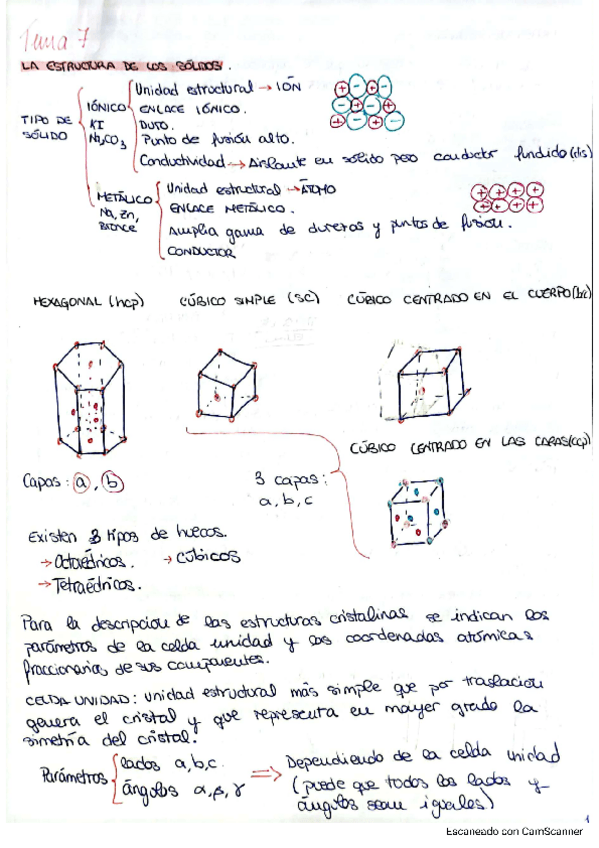 Tema 7
LA ESTRUCTURA DE LOS SÓLIDOS.
TIPO DE SÓLIDO
IÓNICO
KI
Na2CO3
Unidad estructural → IÓN
ENLACE IÓNICO.
DURO.
Punto de fusión alto.
Conductividad → Aislante en sólido pero conductor fundido (dis)
METÁLICO
Na, Zn,
BRONCE
Unidad estructural → ÁTOMO
ENLACE METÁLICO.
Amplia gama de durezas y puntos de fusión.
CONDUCTOR
HEXAGONAL (hcp)
CÚBICO SIMPLE (SC)
CÚBICO CENTRADO EN EL CUERPO (bc)
CÚBICO CENTRADO EN LAS CARAS (ccp)
Capas: a, b
3 capas:
a, b, c
Existen 3 tipos de huecos.
→ Octaédricos. → CÚBICOS
→ Tetraédricos.
Para la descripcion de las estructuras cristalinas se indican los
parámetros de la celda unidad y las coordenadas atómicas
fraccionarias de sus componentes.
CELDA UNIDAD: unidad estructural más simple que por traslacion
genera el cristal y que representa en mayor grado la
simetría del cristal.
Parámetros
lados a, b, c.
ángulos α, β, γ
⇒ Dependiendo de la celda unidad
(puede que todos los lados y
ángulos sean iguales)
1
Escaneado con CamScanner